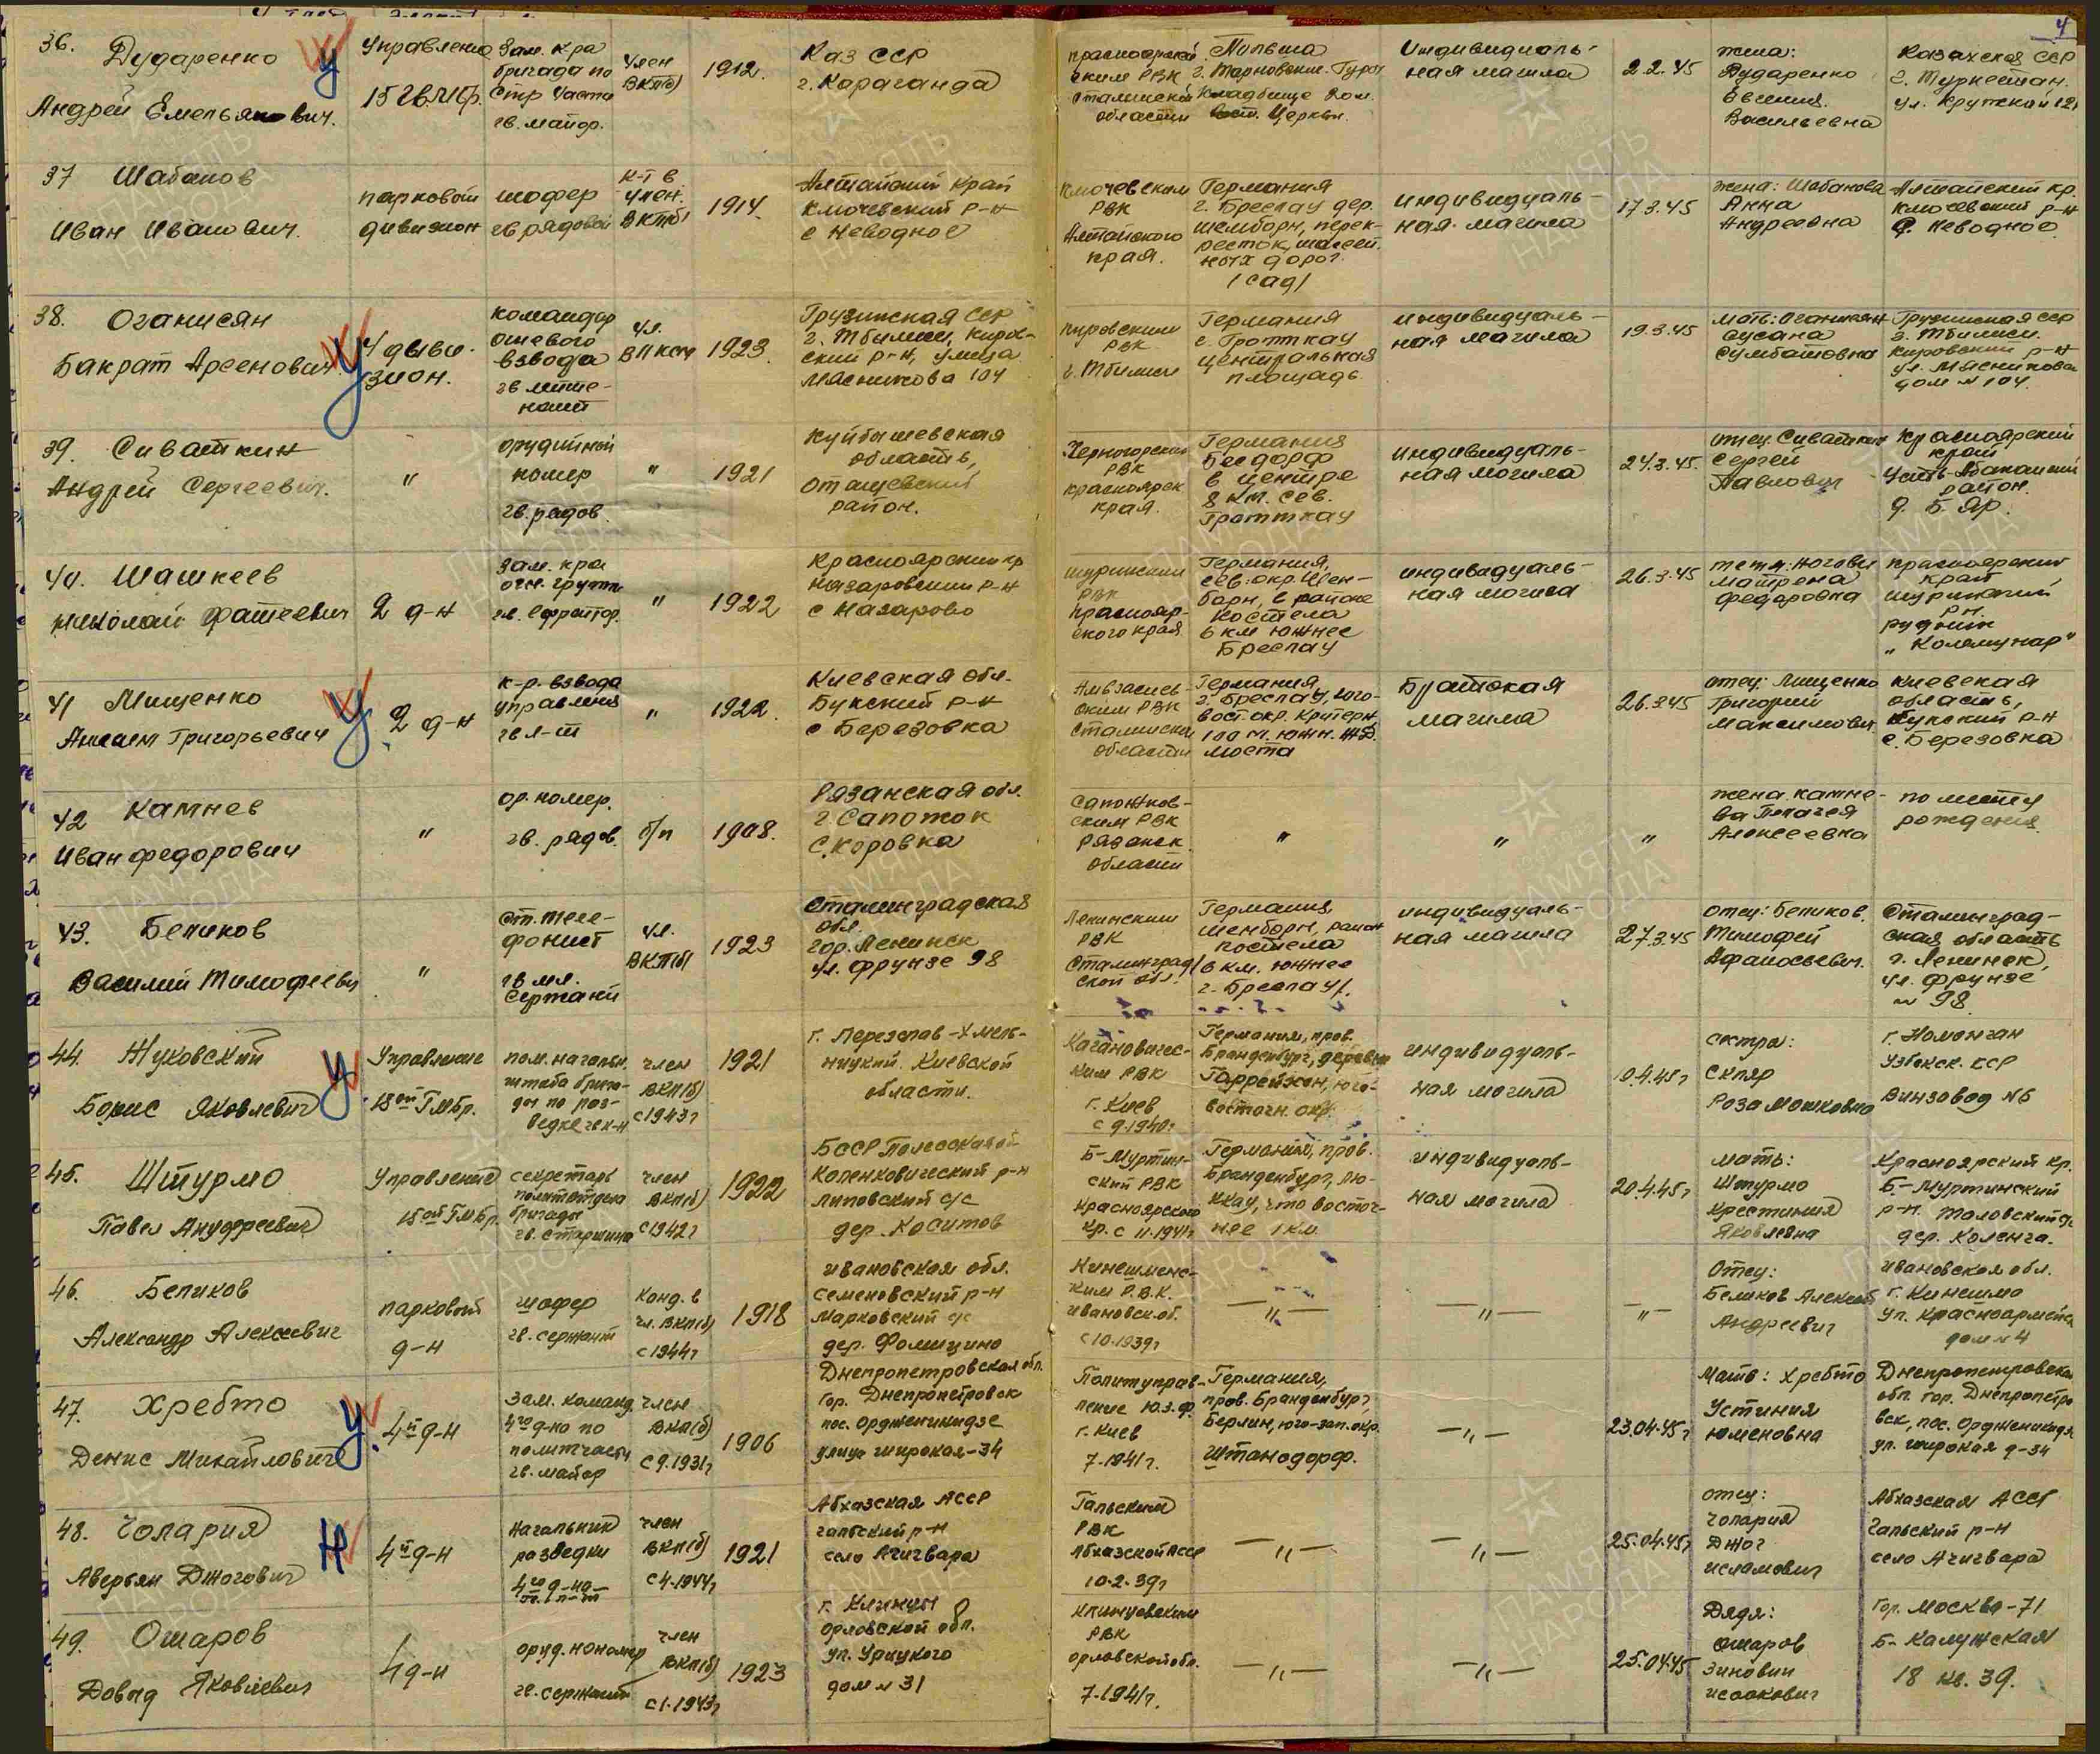 4
36. Дударенко
Андрей Емельянович.
Управление
15 гв.мбр.
Зам. к-ра
бригады по
стр части
гв. майор.
член
ВКП(б)
1912.
Каз ССР
г. Караганда
Красноармей-
ским РВК
Сталинской
области
Польша
г. Тарновские-Гуры
Кладбище
Церкви.
Индивидуаль-
ная могила
2.2.45
жена:
Дударенко
Евгения.
Васильевна
Казахская ССР
г. Туркестан.
37 Шабанов
Иван Иванович.
парковой
дивизион
шофер
гв рядовой
к-т в
член.
ВКПб)
1914.
Алтайский край
Ключевский р-н
с Неводное
Ключевским
РВК
Алтайского
края.
Германия
г. Бреслау дер.
Шемборн, перек-
ресток шоссей-
ных дорог.
/сад/
индивидуаль-
ная могила
17.3.45
жена: Шабанова
Анна
Андреевна
Алтайский кр.
Ключевский р-н
с. Неводное
38. Оганисян
Бакрат Арсенович
4 диви-
зион.
командир
огневого
взвода
гв лейте-
нант
чл.
ВЛКСМ
1923.
Грузинская ССР
г. Тбилиси, Киров-
ский р-н, улица
Мясникова 104
Кировским
РВК
г. Тбилиси
Германия
г. Гротткау
центральная
площадь.
индивидуаль-
ная могила
19.3.45
мать: Оганисян
Сусана
Сумбатовна
Грузинская ССР
г. Тбилиси.
Кировский р-н
ул. Мясникова
дом № 104.
39. Сиваткин
Андрей Сергеевич.
"
орудийный
номер
гв. рядов.
"
1921
Куйбышевская
область,
район.
Черногорским
РВК
Красноярск
края.
Германия
Бесдорф
в центре
8 км. сев.
Гротткау
индивидуаль-
ная могила
24.3.45.
отец. Сиваткин
Сергей
Павлович
Красноярский
край
Усть-Абаканский
район.
д. Б. Яр.
40. Шашкеев
Николай Фатеевич
2 д-н
зам. к-ра
огн. группы
гв. ефрейтор.
"
1922
Красноярский кр
Назаровский р-н
с Назарово
РВК
Краснояр-
ского края
Германия,
сев. окр. Шен-
борн, в районе
костела
6 км южнее
Бреслау
индивидуаль-
ная могила
26.3.45
Матрена
Федоровна
Красноярский
край
р-н.
рудник
„Коммунар"
41 Мищенко
Григорьевич
2 д-н
к-р. взвода
управления
гв л-т
"
1922.
Киевская обл.
Букский р-н
с Березовка
ским РВК
Сталинской
области
Германия
г. Бреслау, юго-
вост. окр. Критерн,
100 м. южн. ж.д.
моста
Братская
могила
26.3.45
отец: Мищенко
Григорий
Максимович
Киевская
область,
Букский р-н
с. Березовка
42 Камнев
Иван Федорович
"
ор. номер.
гв. рядов.
б/п
1908.
Рязанская обл.
г. Сапожок
с. Коровка
Сапожков-
ским РВК
Рязанск.
области
"
"
"
жена. Камне-
ва Пелагея
Алексеевна
по месту
рождения.
43. Беликов
Василий Тимофеевич
"
ст. теле-
фонист
гв мл.
Сержант
чл.
ВКП(б)
1923
Сталинградская
обл.
гор. Ленинск
ул. Фрунзе 98
Ленинским
РВК
Сталинград
ской обл.
Германия,
Шенборн, район
костела
/6 км. южнее
г. Бреслау/.
индивидуаль-
ная могила
27.3.45
отец: Беликов.
Тимофей
Афанасьевич.
Сталинград-
ская область
г. Ленинск,
ул. Фрунзе
№ 98.
44. Жуковский
Борис Яковлевич
Управление
15ой ГМбр.
пом. начальн.
штаба брига-
ды по раз-
ведке гв к-н
член
ВКП(б)
с 1943г
1921
г. Переяслав-Хмель-
ницкий. Киевской
области.
Кагановичес-
ким РВК
г. Киев
с 9.1940г
Германия, пров.
Бранденбург, деревня
восточн. окр.
индивидуаль-
ная могила
19.4.45г
сестра:
Скляр
Роза Мошковна
г. Наманган
Узбекск. ССР
Винзавод №6
45. Штурмо
Павел Ануфреевич
Управление
15ой ГМбр.
секретарь
политотдела
бригады
гв. старшина
член
ВКП(б)
с 1942г
1922
БССР Полесская обл
Коленковический р-н
Липовский с/с
дер. Коситов
Б-Муртин-
ский РВК
Красноярского
кр. с 11.1941г
Германия, пров.
Бранденбург, Лю-
ккау, что восточ-
нее 1 км.
индивидуаль-
ная могила
20.4.45г
мать:
Штурмо
Крестиния
Яковлевна
Красноярский кр.
Б.-Муртинский
р-н. Таловский с/с
46. Беликов
Александр Алексеевич
парковый
д-н
шофер
гв. сержант
Канд. в
чл. ВКП(б)
с 1944г
1918
Ивановская обл.
Семеновский р-н
Марковский с/с
дер. Фомицино
Кинешемс-
ким Р.В.К.
Ивановск. об.
с 10.1939г
—"—
—"—
—"—
Отец:
Беликов Алексей
Андреевич
Ивановская обл.
г. Кинешма
ул. Красноармейска
дом №4
47. Хребто
Денис Михайлович
4й д-н
Зам. команд.
4го д-на по
политчасти
гв. майор
член
ВКП(б)
с 9.1931г
1906
Днепропетровская обл.
гор. Днепропетровск
пос. Орджоникидзе
улица широкая-34
Политуправ-
ление Ю.З.Ф.
г. Киев
7.1941г.
Германия,
пров. Бранденбург,
Берлин, юго-зап. окр.
Штансдорф.
—"—
23.04.45г
Мать: Хребто
Устиния
Юменовна
Днепропетровская
обл. гор. Днепропетро
вск, пос. Орджоникидзе
ул. широкая д-34
48. Чолария
Аверьян Джогович
4й д-н
Начальник
разведки
4го д-на
ст. л-т
член
ВКП(б)
с 4.1944г
1921
Абхазская АССР
Гальский р-н
село Ачигвара
Гальским
РВК
Абхазской АССР
10.2.39г
—"—
—"—
25.04.45г
отец:
Чолария
Джог
Исламович
Абхазская АССР
Гальский р-н
село Ачигвара
49. Ошаров
Довид Яковлевич
4 д-н
оруд. номер
гв. сержант
член
ВКП(б)
с 1.1943г
1923
г. Клинцы
Орловской обл.
ул. Урицкого
дом № 31
Клинцовским
РВК
Орловской обл.
7.1941г.
—"—
—"—
25.04.45
Дядя:
Ошаров
Зиновий
Исаакович
гор. Москва-71
Б-Калужская
18 кв. 39.
ПАМЯТЬ
НАРОДА